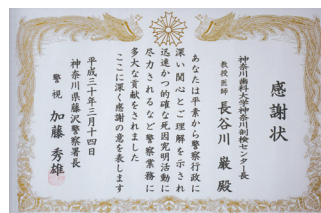 感謝状
神奈川歯科大学神奈川剖検センター長
教授医師 長谷川 巖 殿
あなたは平素から警察行政に
深い関心とご理解を示され
迅速かつ的確な死因究明活動に
尽力されるなど警察業務に
多大な貢献をされました
ここに深く感謝の意を表します
平成三十年三月十四日
神奈川県藤沢警察署長
警視 加藤 秀雄